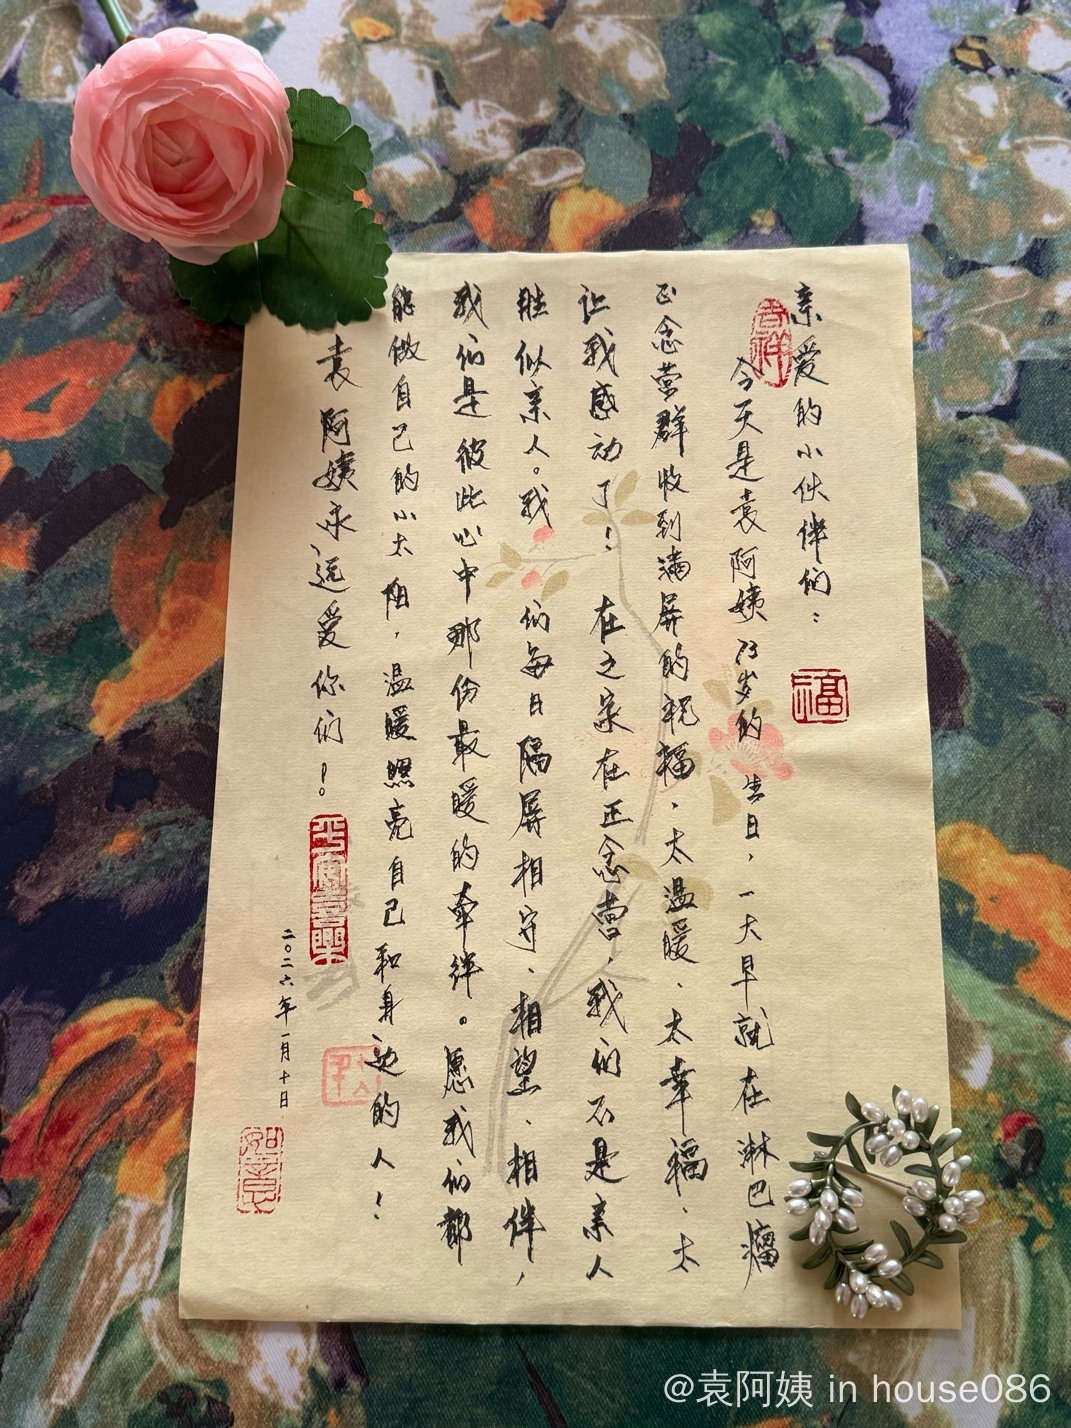 亲爱的小伙伴们：
福
吉祥
今天是袁阿姨73岁的生日，一大早就在淋巴瘤
正念营群收到满屏的祝福、太温暖、太幸福、太
让我感动了！在之家在正念营，我们不是亲人
胜似亲人。我们每日隔屏相守、相望、相伴，
我们是彼此心中那份最暖的牵绊。愿我们都
能做自己的小太阳，温暖照亮自己和身边的人！
袁阿姨永远爱你们！
平安喜乐
二〇二六年一月十日
如意
@袁阿姨 in house086